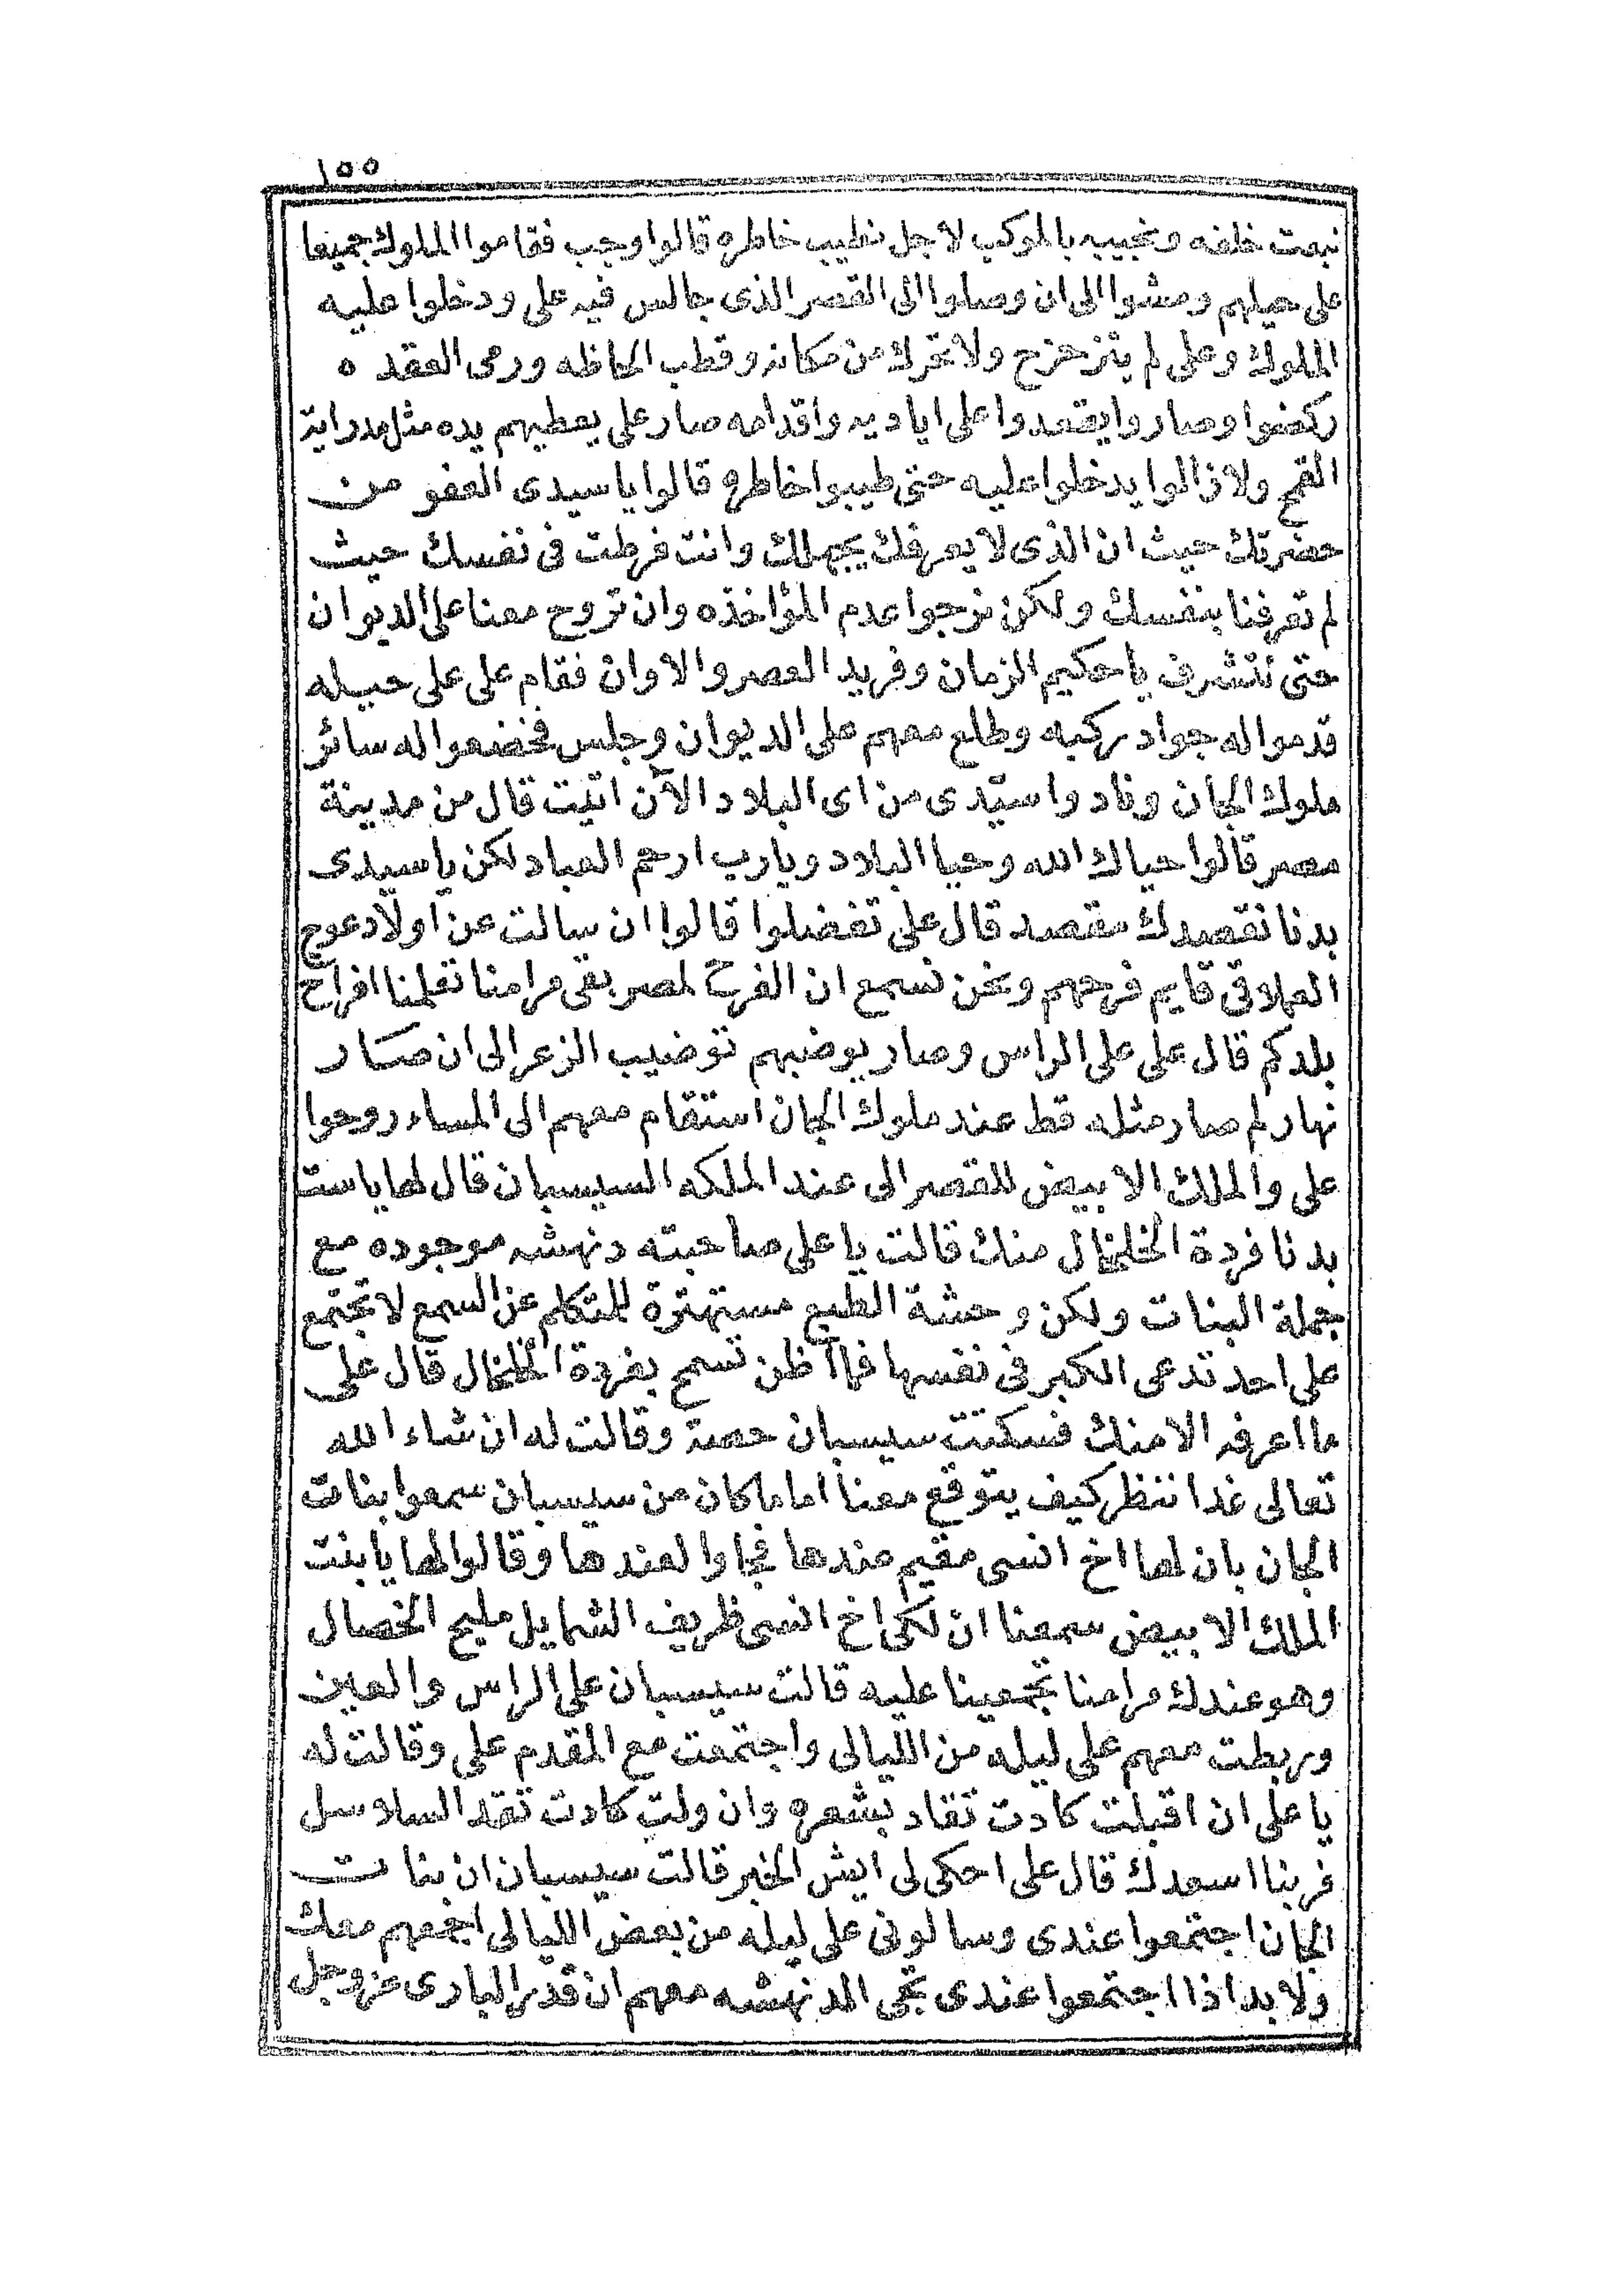 ١٥٥
نبعت خلفه ونجيبه بالموكب لاجل نطيب خاطره قالوا وجب فقاموا الملوك جميعا
على حيلهم ومشوا الى ان وصلوا الى القصر الذى جالس فيه على ودخلوا عليه
الملوك وعلى لم يتزحزح ولا تحرك من مكانه وقطب الحاظه ورمى العقد ه
ركضوا وصاروا يقعدوا على اياديه واقدامه صار على يعطيهم يده مثل مدراية
القمح ولا زالوا يدخلوا عليه حتى طيبوا خاطره قالوا يا سيدى العفو من
حضرتك حيث ان الذى لا يعرفك يجهلك وانت فرطت فى نفسك حيث
لم تعرفنا بنفسك ولكن نرجوا عدم المؤاخذه وان تروح معنا على الديوان
حتى نتشرف يا حكيم الزمان وفريد العصر والاوان فقام على على حيله
قدموا له جواد ركبه وطلع معهم على الديوان وجلس فخضعوا له سائر
ملوك الجان ونادوا سيّدى من اى البلاد الآن اتيت قال من مدينة
مصر قالوا حياك الله وحيا البلاد ويارب ارحم العباد لكن يا سيدى
بدنا نقصدك مقصد قال على تفضلوا قالوا ان سالت عن اولاد عوج
العملاقى قايم فرحهم ونحن نسمع ان الفرح لمصر بقى مرامنا تعلمنا افراح
بلدكم قال على على الراس وصار يوضبهم توضيب الزعر الى ان صار
نهار لم صار مثله قط عند ملوك الجان استقام معهم الى المساء روحوا
على والملك الابيض للقصر الى عند الملكه السيسبان قال لها يا ست
بدنا فردة الخلخال منك قالت يا على صاحبته دنهشه موجوده مع
جملة البنات ولكن وحشة الطبع مستهترة للمتكلم عن السمع لا تجتمع
على احد تدعى الكبر فى نفسها فما أظن تسمح بفردة الخلخال قال على
ما اعرفه الا منك فسكتت سيسبان حصة وقالت له ان شاء الله
تعالى غدا ننظر كيف يتوقع معنا اما ما كان من سيسبان سمعوا بنات
الجان بان لها اخ انسى مقيم عندها فجاوا لعندها وقالوا لها يا بنت
الملك الابيض سمعنا ان لكى اخ انسى ظريف الشمايل مليح الخصال
وهو عندك مرامنا تجمعينا عليه قالت سيسبان على الراس والعين
وربطت معهم على ليله من الليالى واجتمعت مع المقدم على وقالت له
يا على ان اقبلت كادت تقاد بشعره وان ولت كادت تقد السلاسل
فربنا اسعدك قال على احكى لى ايش الخبر قالت سيسبان ان بنات
الجان اجتمعوا عندى وسالونى على ليله من بعض الليالى اجمعهم معك
ولا بد اذا اجتمعوا عندى تجى الدنهشه معهم ان قدر البارى عز وجل